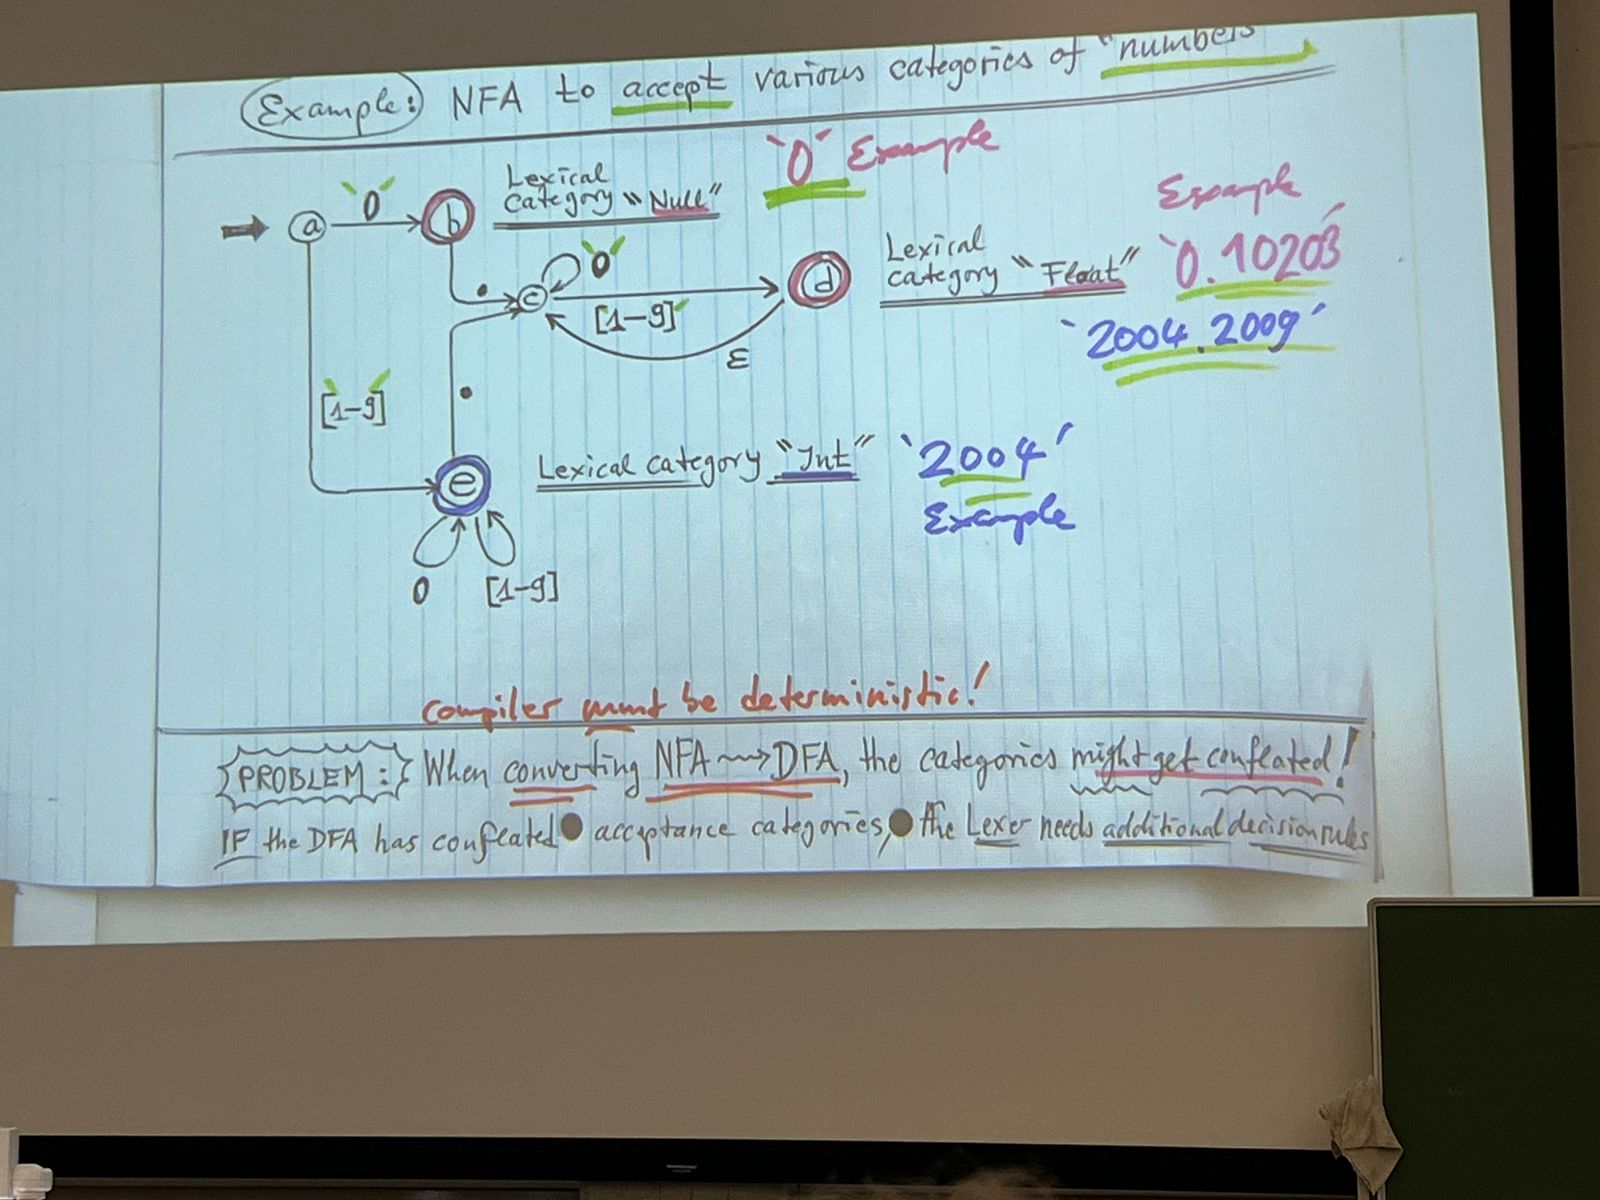 Example: NFA to accept various categories of "numbers"
'0' Example
Lexical
category "Null"
'0'
a
b
Example
Lexical
category "Float"
'0.10203'
'0'
c
d
.
'[1-9]'
ε
'2004.2009'
'[1-9]'
.
e
Lexical category "Int"
'2004'
Example
0
[1-9]
compiler must be deterministic!
PROBLEM: When converting NFA ⇝ DFA, the categories might get conflated!
IF the DFA has conflated acceptance categories, the Lexer needs additional decision rules